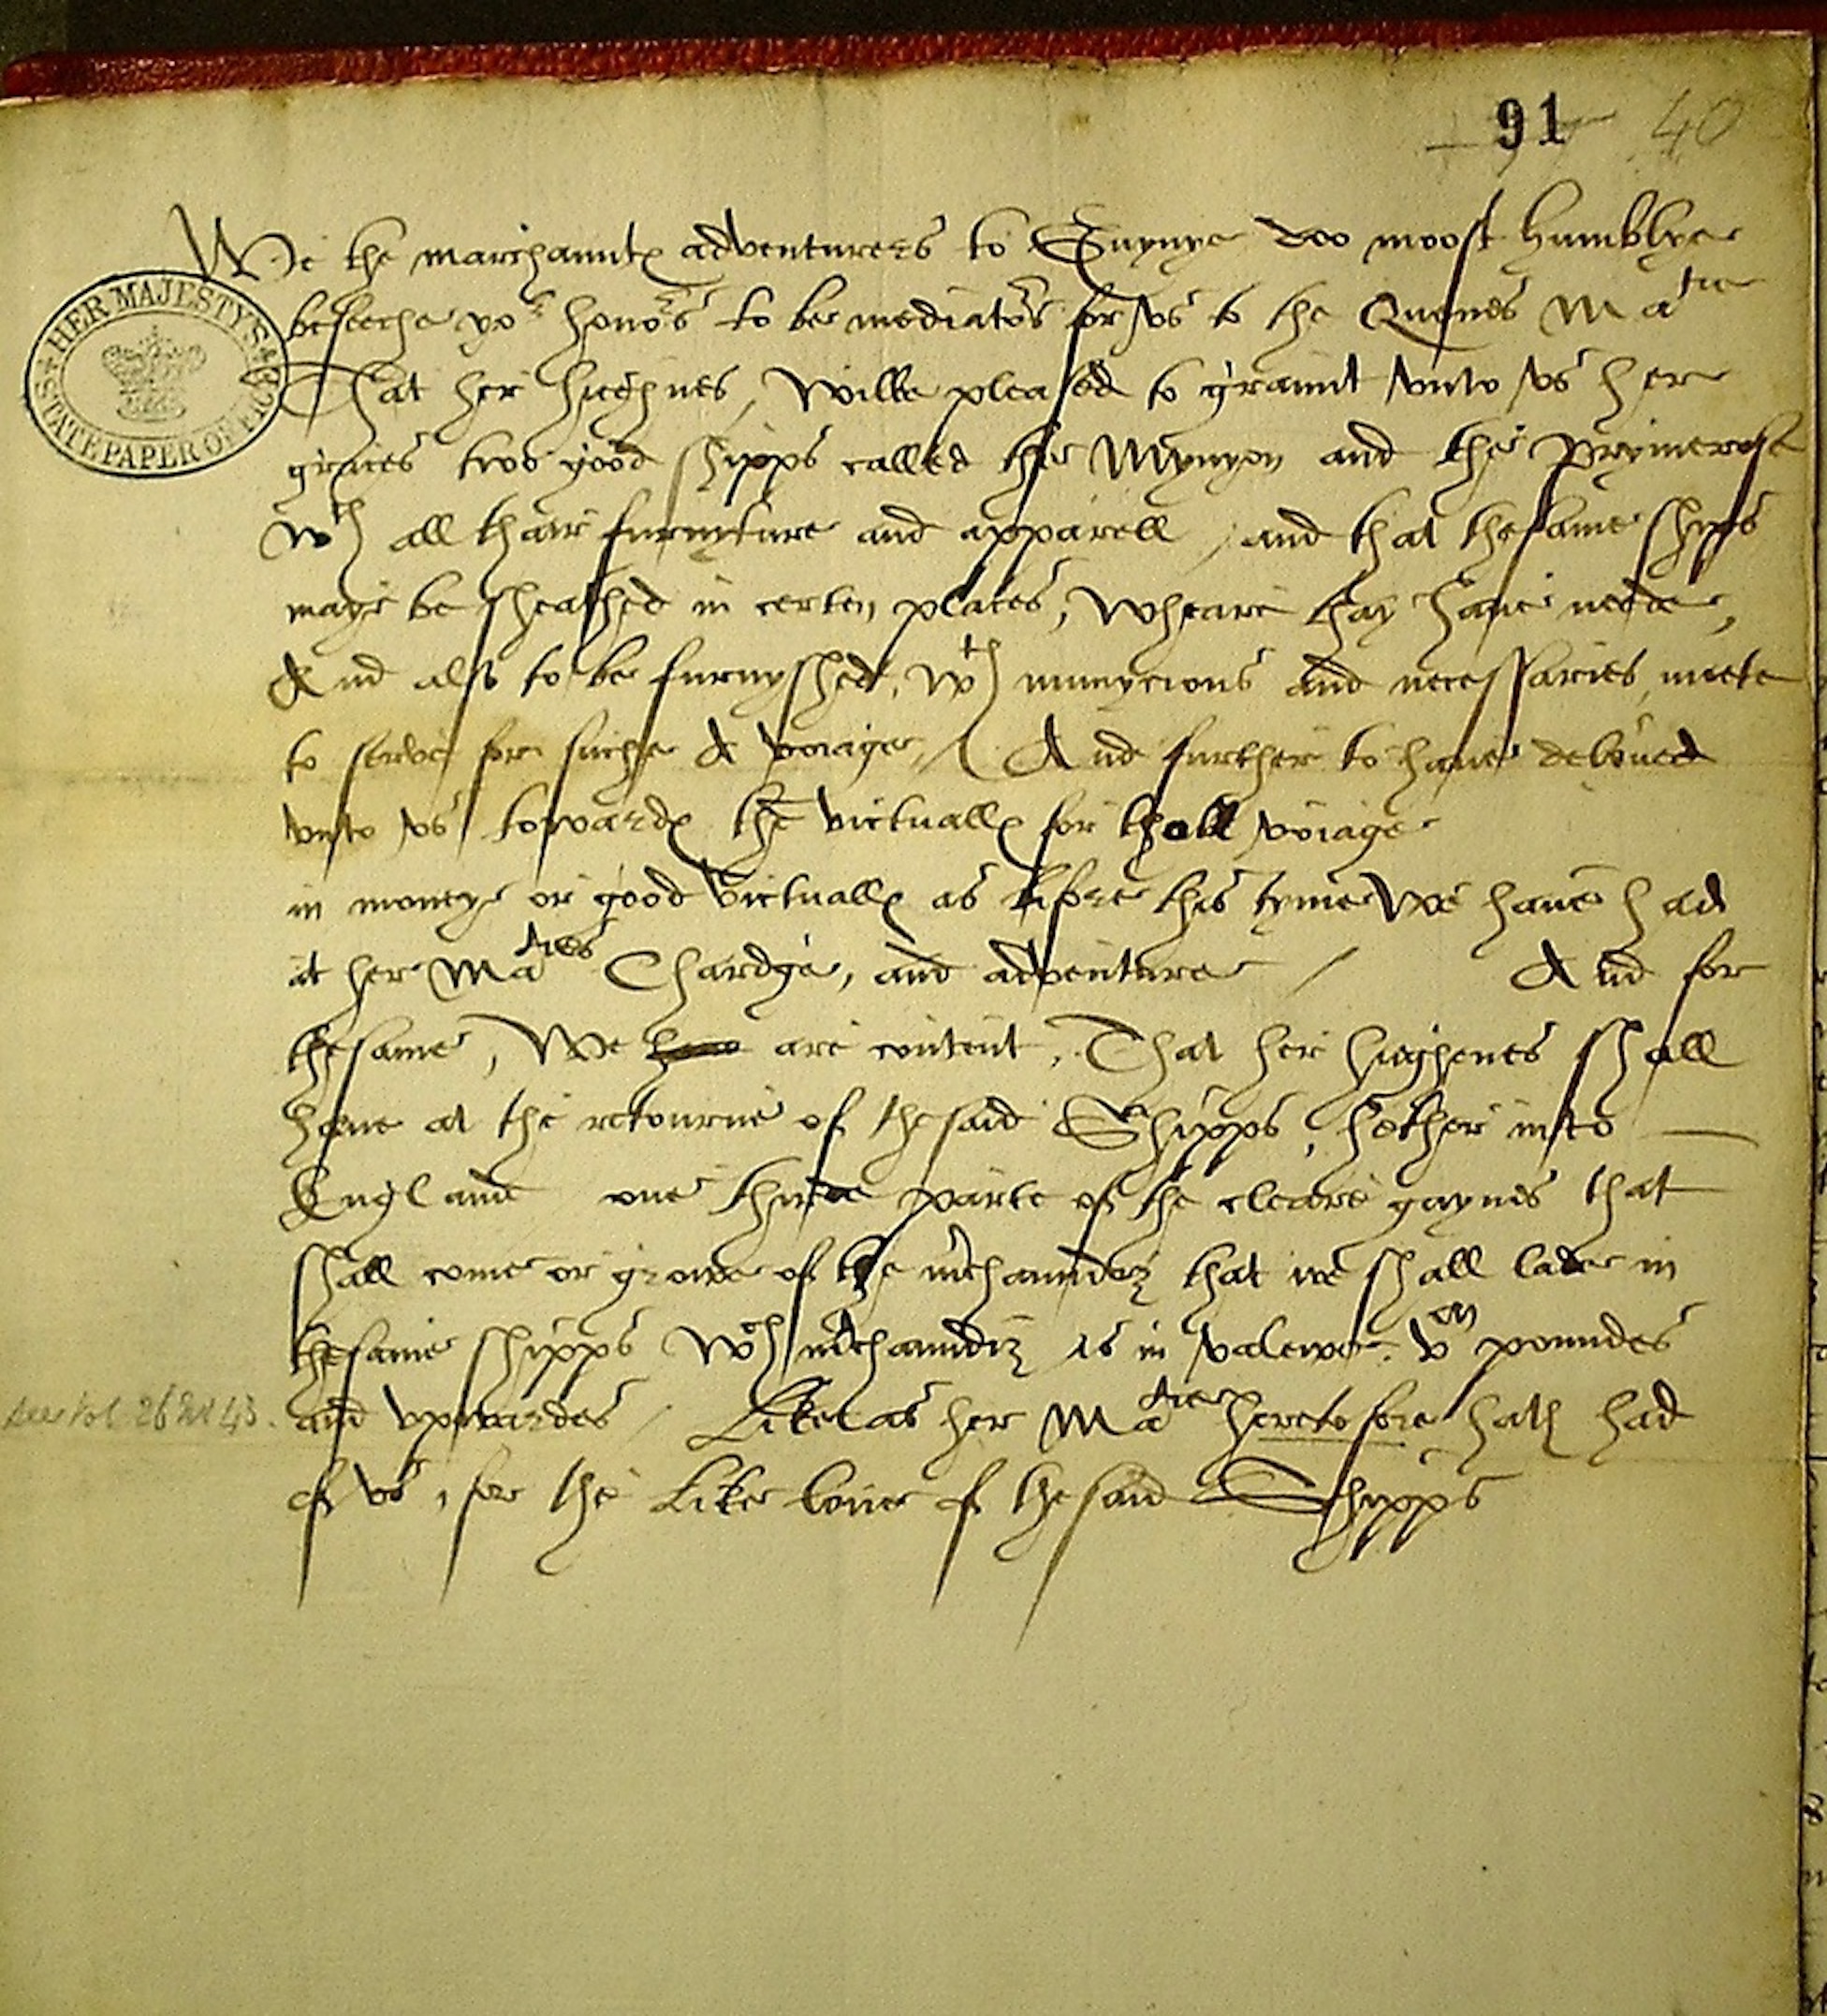 91 40
We the marchauntes adventurers to Guynye doo moost humblye
HER MAJESTY'S STATE PAPER OFFICE
beseeche yor honors to be mediators for vs to the Quenes Matie
That her hieghnes, Wilbe pleased to graunt vnto vs her
graces two good shipps called the Mynyon and the Prymerose
wth all thair furnyture and apparell, and that thesame shipps
maye be sheathed in certen places, Wheare thay haue neede,
And also to be furnysshed, wth munycions and necessaries meete
to serve for suche A voiage / And further to haue deliued
vnto vs towardes the victualles for thall voiage
in money or good victualles as before this tyme We haue had
at her Maties Chardge, and adventure / And for
thesame, We are content, That her hieghenes shall
haue at the retourne of thesaid Shipps, hether into
England one thirde parte of the cleare gaynes that
shall come or growe of the mchaundiz that we shall lade in
thesame shipps wch mchaundiz is in valewe vm poundes
see vol 26 No 43.
and vpwardes / Likeas her Matie heretofore hath had
of vs, for the Like lone of thesaid Shipps